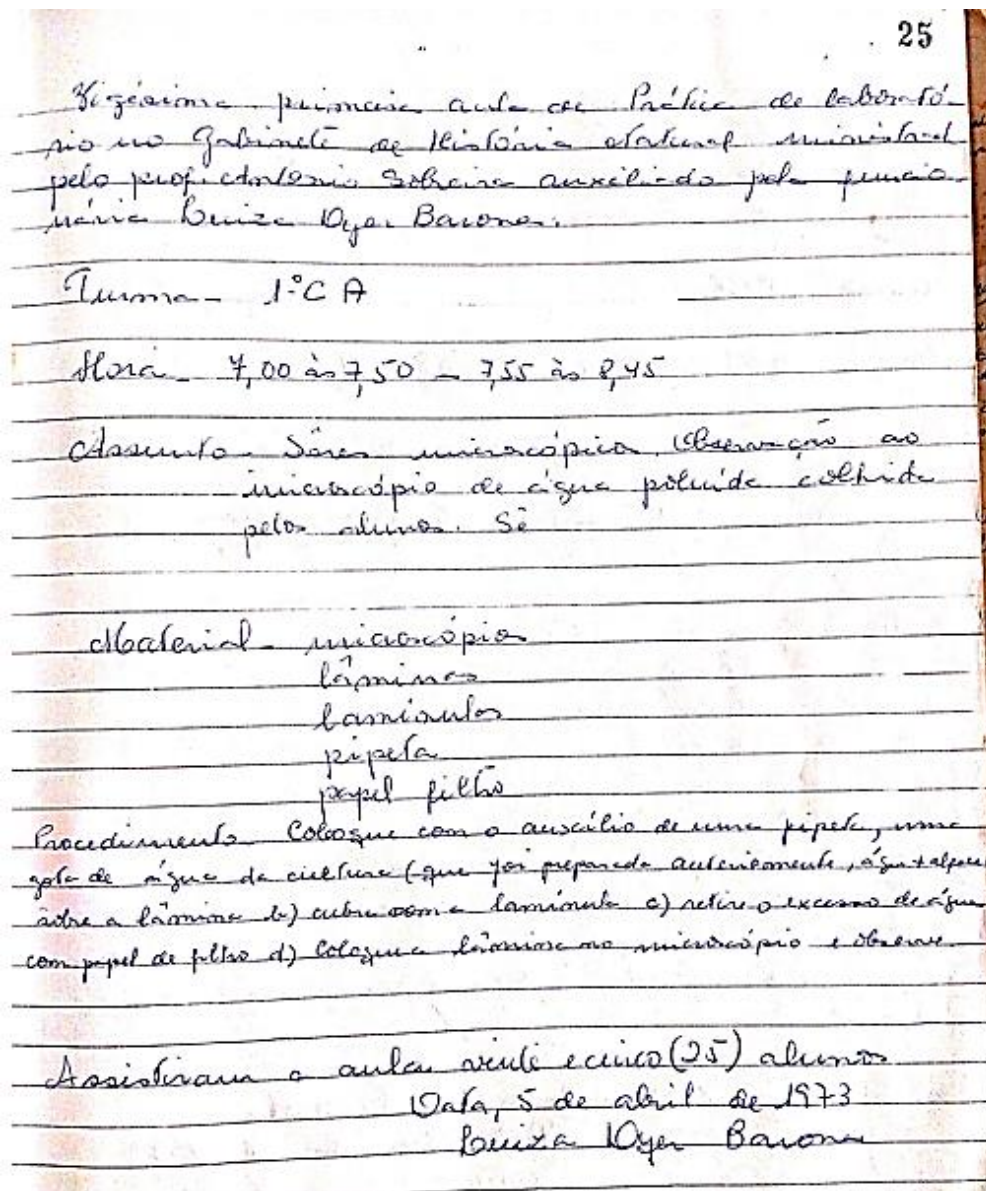 25
Vigésima primeira aula de Prática de laborató-
rio no Gabinete de História Natural ministrad
pelo prof. Antonio auxiliado pela funcio-
nária Luiza Dyer Barone.
Turma - 1º C A
Hora - 7,00 às 7,50 - 7,55 às 8,45
Assunto - Sêres microscópicos. Observação ao
microscópio de água poluída colhida
pelos alunos. Sê
Material - microscópios
lâminas
lamínulas
pipeta
papel filtro
Procedimento - Coloque com o auxílio de uma pipeta, uma
gota de água da cultura (que foi preparada anteriormente, água + alface
sôbre a lâmina b) cubra com a lamínula c) retire o excesso de água
com papel de filtro d) Coloque a lâmina no microscópio e observe.
Assistiram a aula vinte e cinco (25) alunos
Data, 5 de abril de 1973
Luiza Dyer Barone